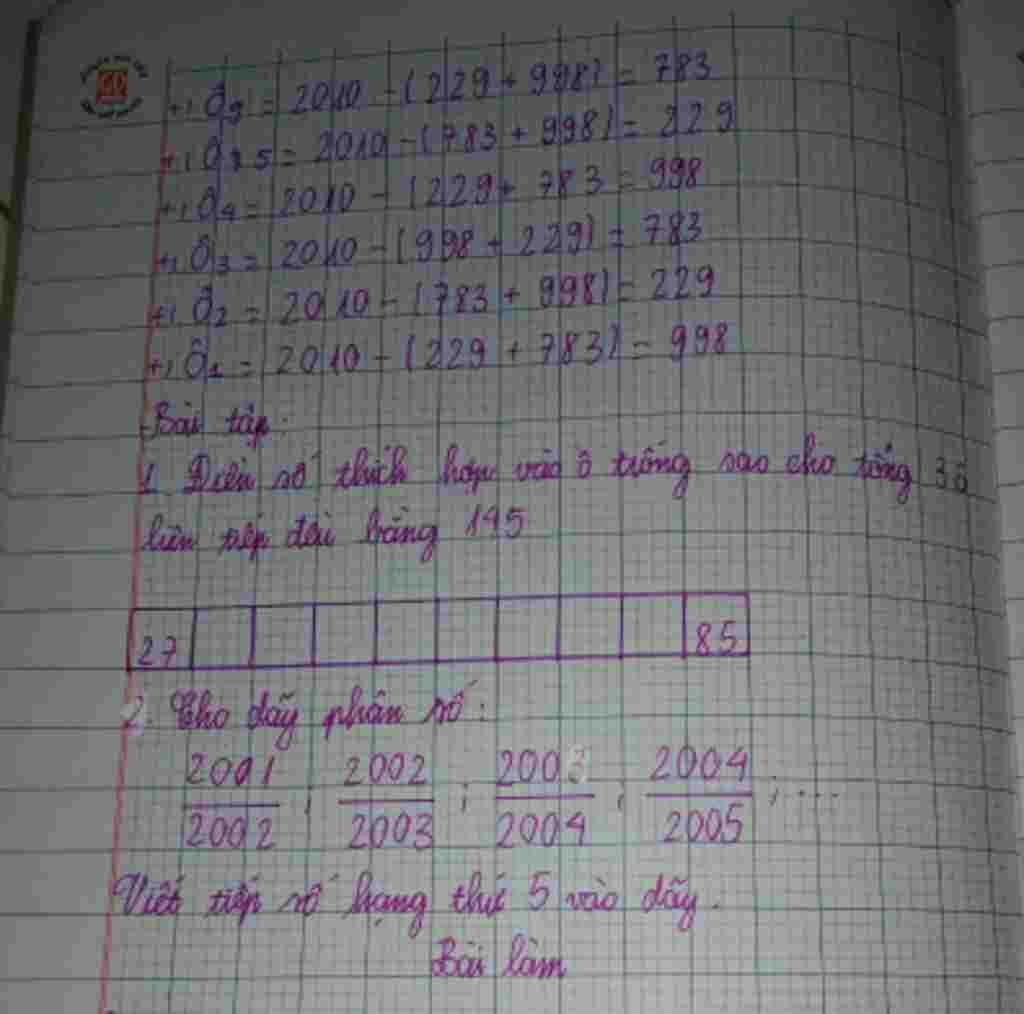 +, Ô9 = 2010 - (229 + 998) = 783
+, Ô5 = 2010 - (783 + 998) = 229
+, Ô4 = 2010 - (229 + 783 = 998
+, Ô3 = 2010 - (998 + 229) = 783
+, Ô2 = 2010 - (783 + 998) = 229
+, Ô1 = 2010 - (229 + 783) = 998
Bài tập.
1. Điền số thích hợp vào ô trống sao cho tổng 3 ô
liên tiếp đều bằng 195
27 85
2. Cho dãy phân số:
2001/2002 ; 2002/2003 ; 2003/2004 ; 2004/2005 ; ...
Viết tiếp số hạng thứ 5 vào dãy.
Bài làm